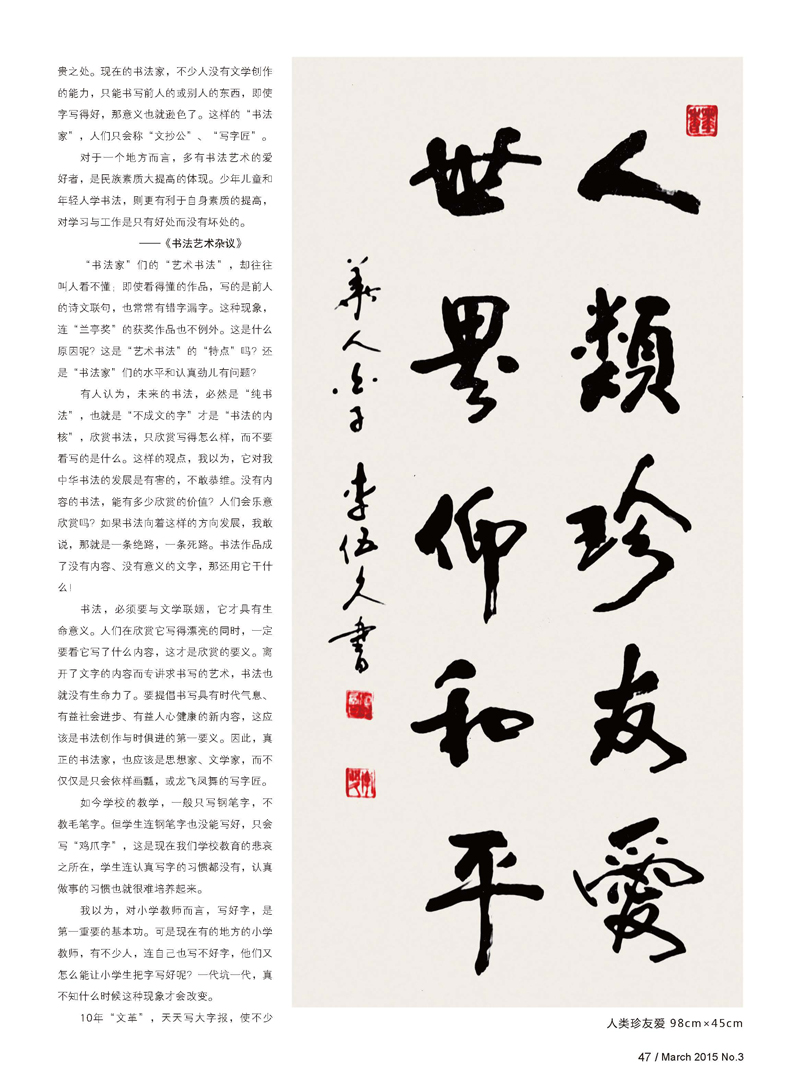 贵之处。现在的书法家，不少人没有文学创作
的能力，只能书写前人的或别人的东西，即使
字写得好，那意义也就逊色了。这样的“书法
家”，人们只会称“文抄公”、“写字匠”。
对于一个地方而言，多有书法艺术的爱
好者，是民族素质大提高的体现。少年儿童和
年轻人学书法，则更有利于自身素质的提高，
对学习与工作是只有好处而没有坏处的。
——《书法艺术杂议》
“书法家”们的“艺术书法”，却往往
叫人看不懂；即使看得懂的作品，写的是前人
的诗文联句，也常常有错字漏字。这种现象，
连“兰亭奖”的获奖作品也不例外。这是什么
原因呢？这是“艺术书法”的“特点”吗？还
是“书法家”们的水平和认真劲儿有问题？
有人认为，未来的书法，必然是“纯书
法”，也就是“不成文的字”才是“书法的内
核”，欣赏书法，只欣赏写得怎么样，而不要
看写的是什么。这样的观点，我以为，它对我
中华书法的发展是有害的，不敢恭维。没有内
容的书法，能有多少欣赏的价值？人们会乐意
欣赏吗？如果书法向着这样的方向发展，我敢
说，那就是一条绝路，一条死路。书法作品成
了没有内容、没有意义的文字，那还用它干什
么！
书法，必须要与文学联姻，它才具有生
命意义。人们在欣赏它写得漂亮的同时，一定
要看它写了什么内容，这才是欣赏的要义。离
开了文字的内容而专讲求书写的艺术，书法也
就没有生命力了。要提倡书写具有时代气息、
有益社会进步、有益人心健康的新内容，这应
该是书法创作与时俱进的第一要义。因此，真
正的书法家，也应该是思想家、文学家，而不
仅仅是只会依样画瓢，或龙飞凤舞的写字匠。
如今学校的教学，一般只写钢笔字，不
教毛笔字。但学生连钢笔字也没能写好，只会
写“鸡爪字”，这是现在我们学校教育的悲哀
之所在，学生连认真写字的习惯都没有，认真
做事的习惯也就很难培养起来。
我以为，对小学教师而言，写好字，是
第一重要的基本功。可是现在有的地方的小学
教师，有不少人，连自己也写不好字，他们又
怎么能让小学生把字写好呢？一代坑一代，真
不知什么时候这种现象才会改变。
10年“文革”，天天写大字报，使不少
人類珍友愛
世界仰和平
義人 子 李伍久書
人类珍友爱 98cm×45cm
47 / March 2015 No.3